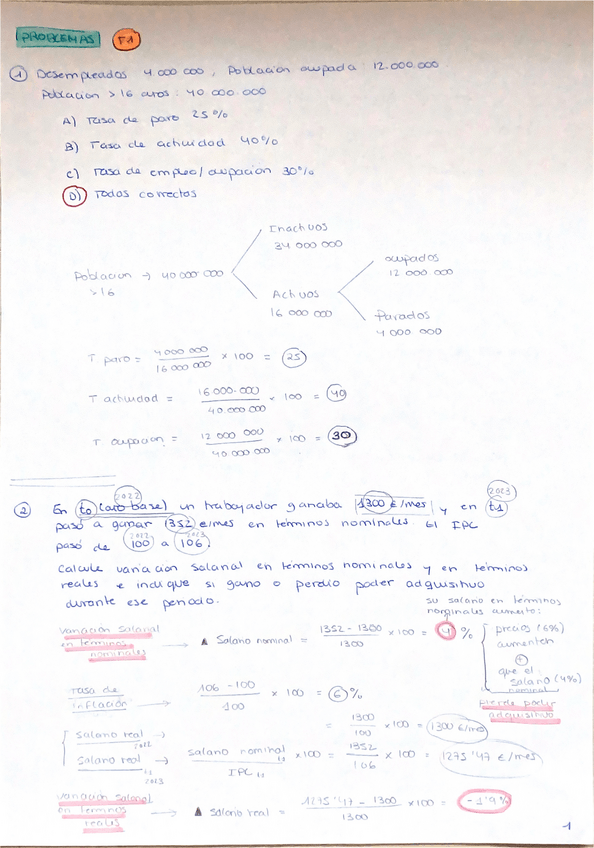 PROBLEMAS F1
1 Desempleados 4.000 000 , Población ocupada : 12.000.000
Población >16 años : 40 000.000
A) Tasa de paro 25%
B) Tasa de actividad 40%
C) Tasa de empleo/ocupación 30%
D) Todos correctos
Inactivos
34 000 000
ocupados
12 000 000
Población → 40 000 000
>16
Activos
16 000 000
Parados
4 000 000
T paro = 4 000 000 / 16 000 000 × 100 = 25
T actividad = 16 000.000 / 40.000 000 × 100 = 40
T ocupación = 12 000 000 / 40 000 000 × 100 = 30
2022 2023
2 En t0 (año base) un trabajador ganaba 1300 €/mes y en t1
pasó a ganar 1352 €/mes en términos nominales. El IPC
2022 2023
pasó de 100 a 106.
Calcule variación salarial en términos nominales y en términos
reales e indique si ganó o perdió poder adquisitivo
durante ese periodo.
su salario en términos
nominales aumentó:
variación salarial
en términos
nominales → ▲ Salario nominal = 1352 - 1300 / 1300 × 100 = 4 %
precios (6%)
aumenten
+
que el
salario (4%)
nominal
pierde poder
adquisitivo
Tasa de
inflación → 106 - 100 / 100 × 100 = 6 %
Salario real 2022 → = 1300 / 100 × 100 = 1300 €/mes
Salario real t1 2023 → Salario nominal t1 / IPC t1 × 100 = 1352 / 106 × 100 = 1275'47 €/mes
variación salarial
en términos
reales → ▲ Salario real = 1275'47 - 1300 / 1300 × 100 = -1'9 %
1